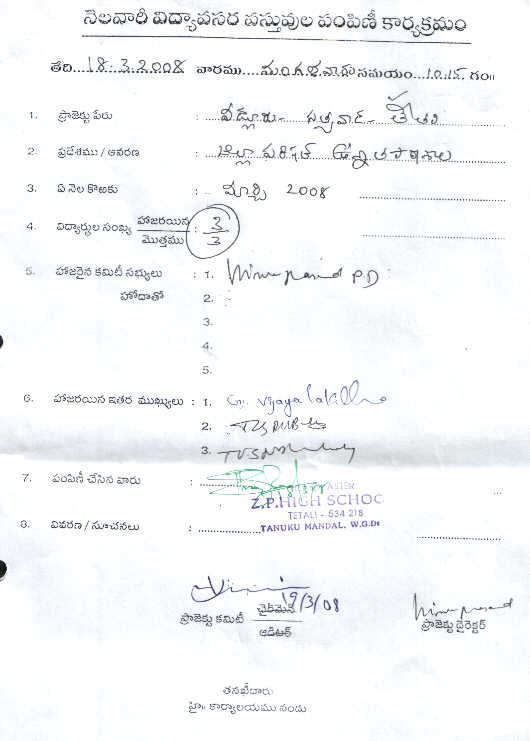 నెలవారీ విద్యావసర వస్తువుల పంపిణీ కార్యక్రమం
తేది...18-3-2008 వారము...మంగళవారం సమయం...10.15. గం॥
1. ప్రాజెక్టు పేరు :
2. ప్రదేశము / ఆవరణ : జిల్లా పరిషత్ ఉన్నత పాఠశాల
3. ఏ నెల కొఱకు : మార్చి 2008
4. విద్యార్థుల సంఖ్య హాజరయిన / మొత్తము : 3 / 3
5. హాజరైన కమిటీ సభ్యులు : 1. P.D
హోదాతో 2.
3.
4.
5.
6. హాజరయిన ఇతర ముఖ్యులు : 1. Vijaya lakshmi
2.
3.
7. పంపిణీ చేసిన వారు :
Z.P.HIGH SCHOO
TETALI - 534 218
8. వివరణ / సూచనలు : TANUKU MANDAL, W.G.Dt
19/3/08
ప్రాజెక్టు కమిటీ చైర్‌మెన్ / ఆడిటర్
ప్రాజెక్టు డైరెక్టర్
తనఖీదారు
హై॥ కార్యాలయము నందు